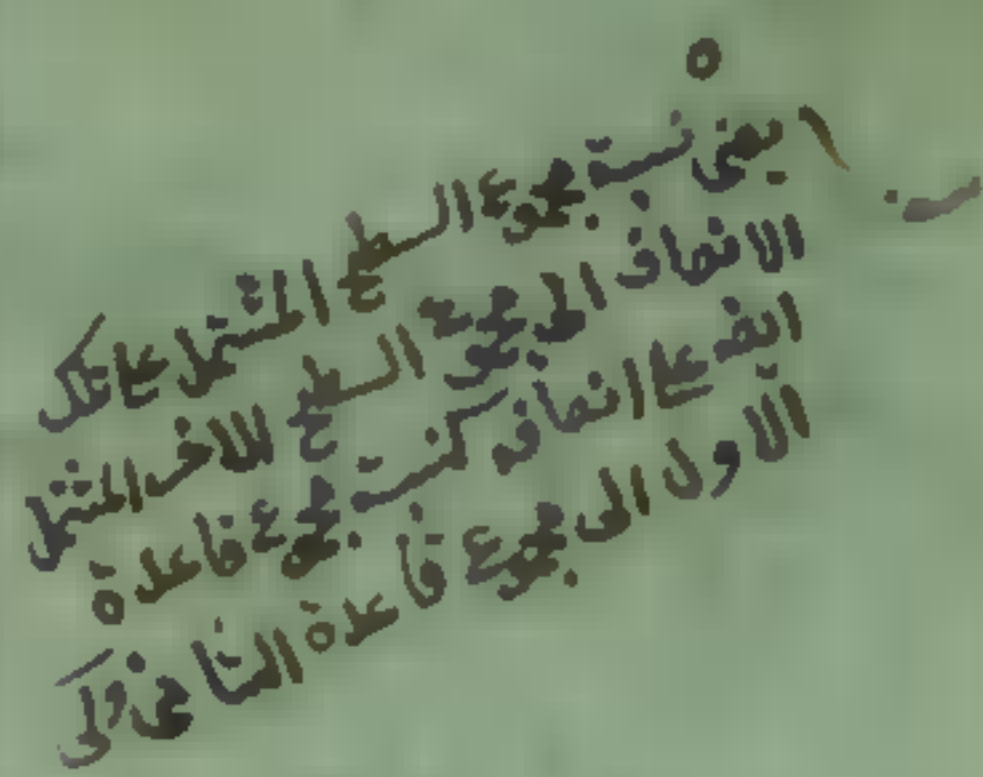 يعنى نسبة مجموع السطح المشتمل على تلك
الانصاف الى مجموع السطح الاخر المشتمل
ايضا على انصاف كنسبة مجموع قاعدة
الاول الى مجموع قاعدة الثانى وكى